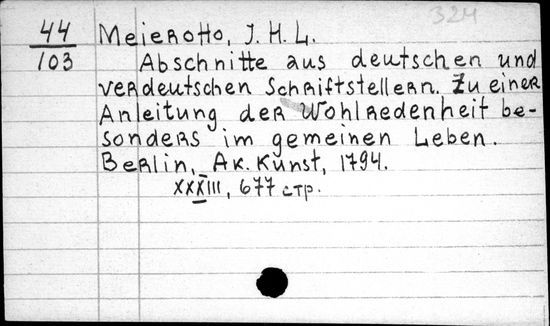 324
44 Meierotto, J. H. L.
103 Abschnitte aus deutschen und
verdeutschen Schriftstellern. Zu einer
Anleitung der Wohlredenheit be-
sonders im gemeinen Leben.
Berlin, Ak. Kunst, 1794.
XXXIII, 677 стр.